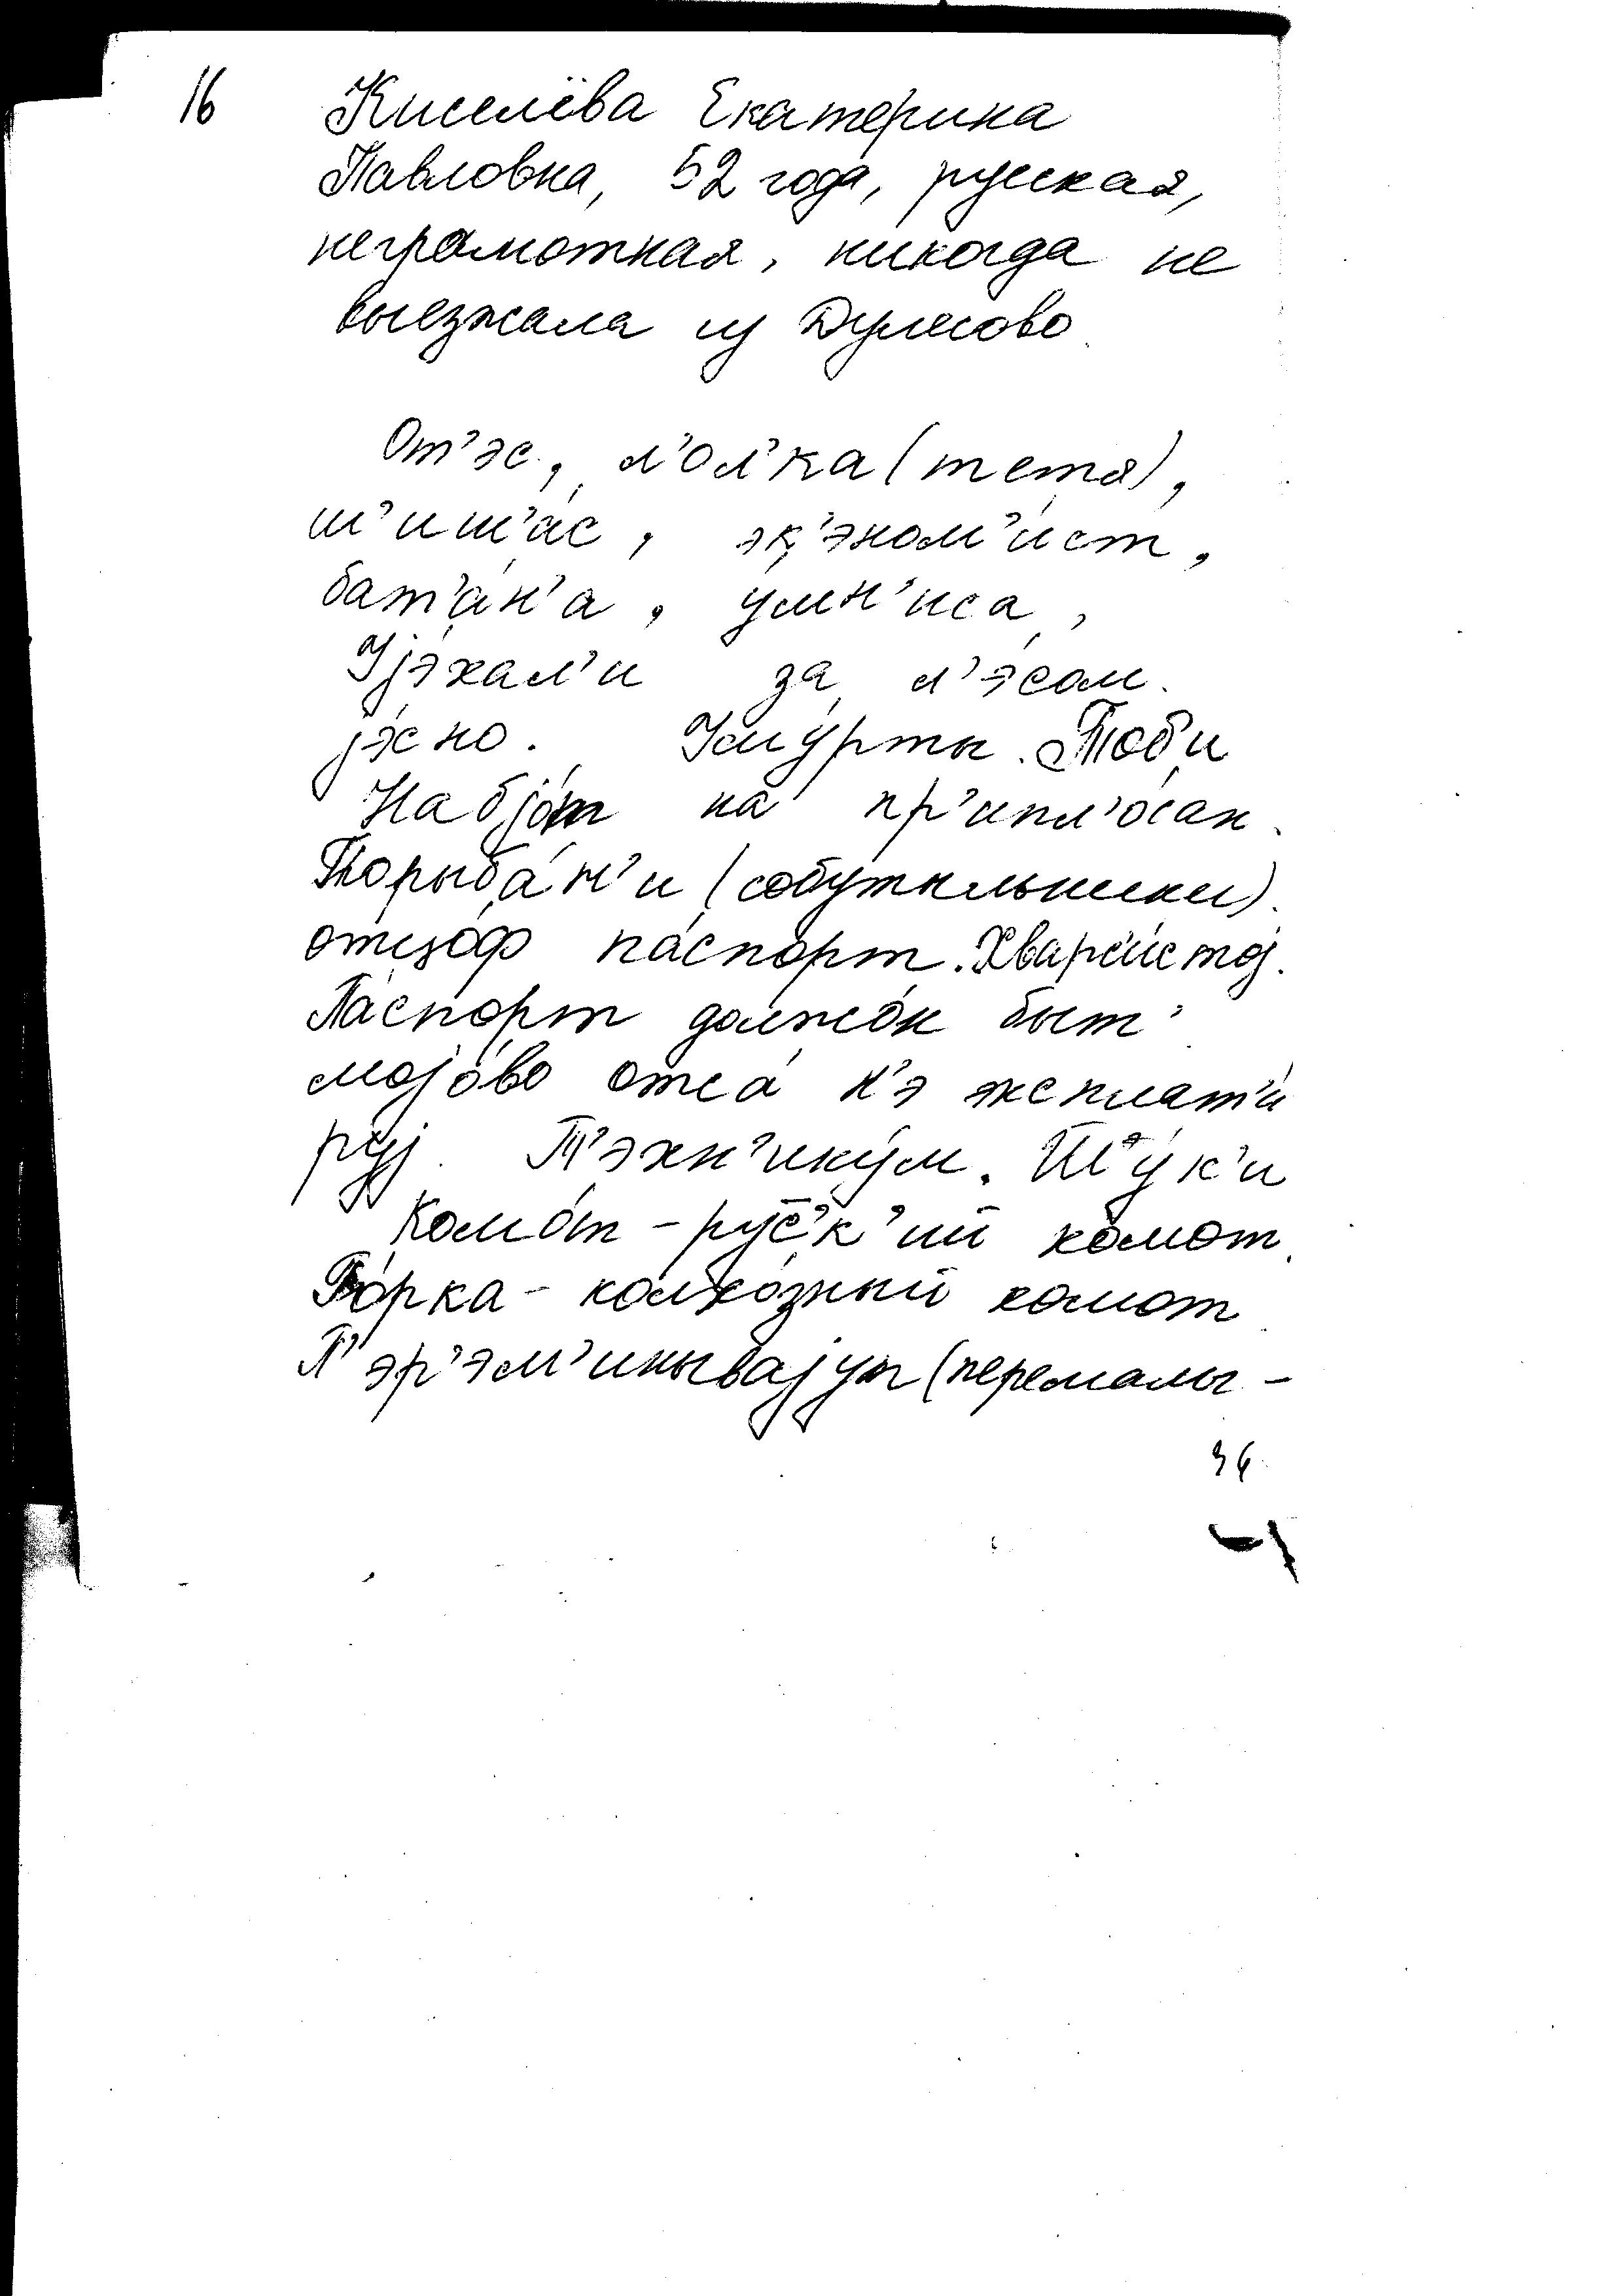 16 Киселёва Екатерина
Павловна, 52 года, русская,
неграмотная, никогда не
выезжала из Дулесово
От'эс, л'ол'ка (тетя),
ш'иш'а́с, эк'эном'и́ст,
бат'а́н'а, у́мн'иса,
Уjэ́хал'и за л'э́сом.
jэ́сно. Уму́рты. Тоб'и
Набjо́т на пр'ипл'о́сак.
Торыба́н'и (собутыльники).
отцо́ф па́спорт.
Па́спорт должо́н быт'
моjо́во отса́ н'э эксплат'и́
руj. Т'эхн'ику́м. Ш'у́к'и
Комо́т - ру́с'к'ий комот.
Го́рка - колхо́зный комот
П'эр'эм'и́нываjут (перемалы-
36